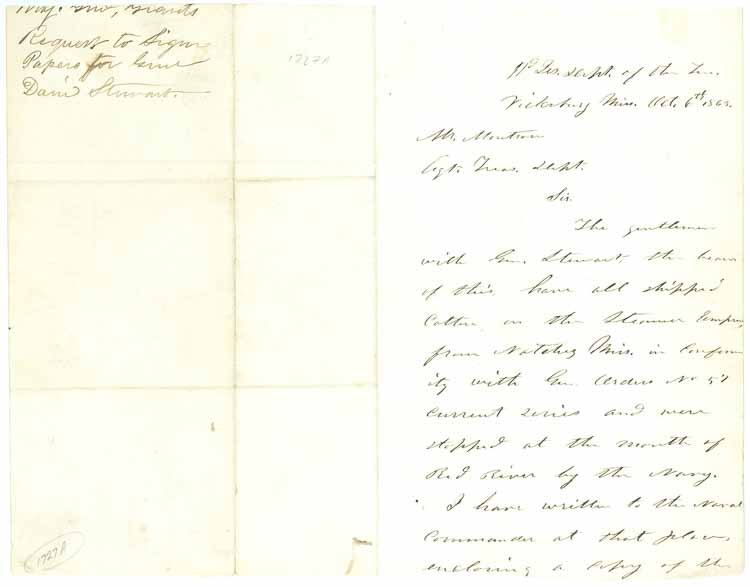 Maj. Gen. Grants
Request to Sign
Papers for Genl
David Stewart.
1727A
1727A
Hd Qrs. Dept. of the Ten.
Vicksburg Miss. Oct. 6th 1863.
Mr. Montross
Agt. Treas. Dept.
Sir.
The gentlemen
with Gen. Stewart, the bearer
of this, have all shipped
Cotton on the Steamer Empress
from Natchez Miss. in Conform
ity with Gen. Orders No 57
Current series and were
stopped at the mouth of
Red River by the Navy.
I have written to the Naval
Commander at that place,
enclosing a copy of the